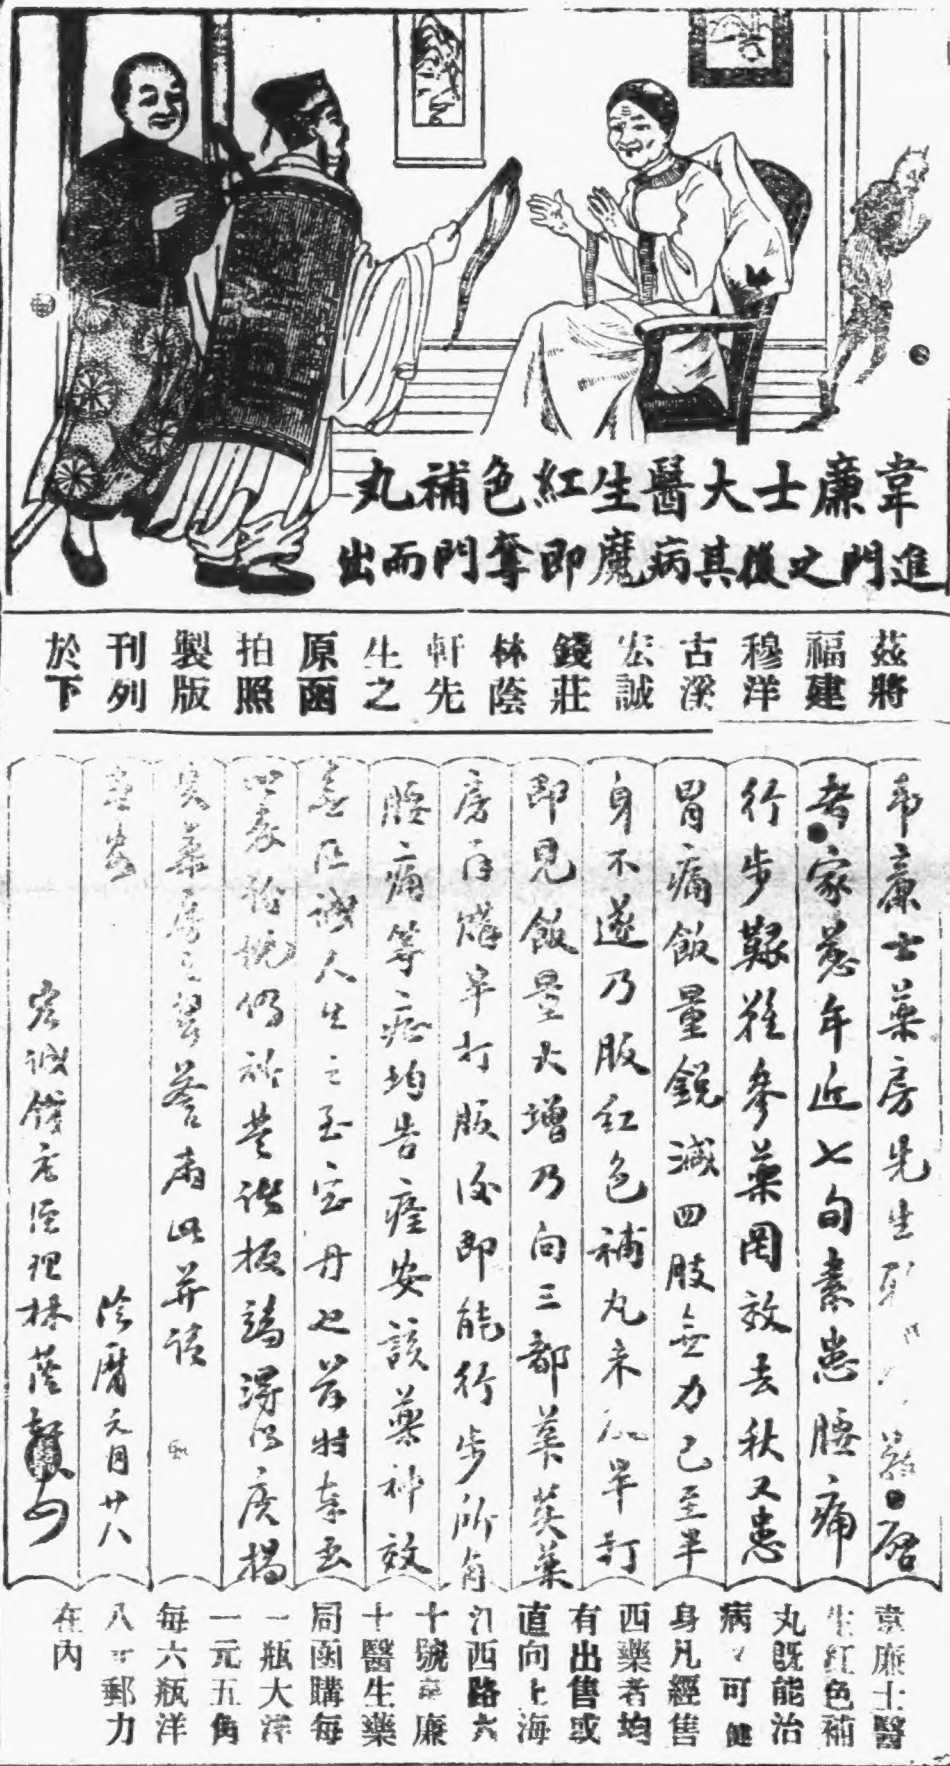 韋廉士大醫生紅色補丸
進門之後其病魔即奪門而出
茲將
福建
穆洋
古深
宏誠
錢莊
林蔭
軒先
生之
原函
拍照
製版
刊列
於下
韋廉士藥房先生
啓
者家慈年近七旬素患腰痛
行步艱難參藥罔效去秋又患
胃痛飯量銳減四肢無力已至半
身不遂乃服紅色補丸半打
即見飯量大增乃向三都英藥
房再購半打服後即能行步所有
腰痛等症均告痊安該藥神效
人生之至宝丹也茲特奉函
廣揚
貴藥房之
並請
陰曆元月廿八
宏誠錢庄經理林蔭軒
韋廉士醫
生紅色補
丸既能治
病又可健
身凡經售
西藥者均
有出售或
直向上海
江西路六
十號韋廉
士醫生藥
局函購每
一瓶大洋
一元五角
每六瓶洋
八元郵力
在內